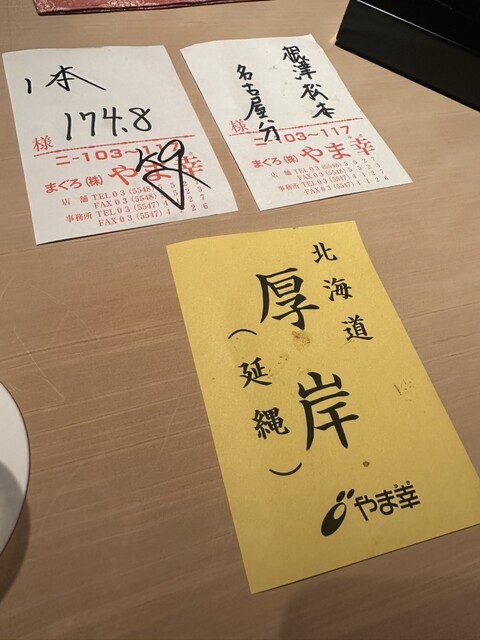 1本
174.8
kg
様
ニ-103〜117
まぐろ(株) やま幸
店舗 TEL 03 (5548) 5527
FAX 03 (5548) 5523
事務所 TEL 03 (5547) 4127
FAX 03 (5547) 4126
根津松本
名古屋分
様
ニ-103〜117
まぐろ(株) やま幸
店舗 TEL 03 (5548) 5527
FAX 03 (5548) 5523
事務所 TEL 03 (5547) 4127
FAX 03 (5547) 4126
北海道
厚岸
(延縄)
やま幸